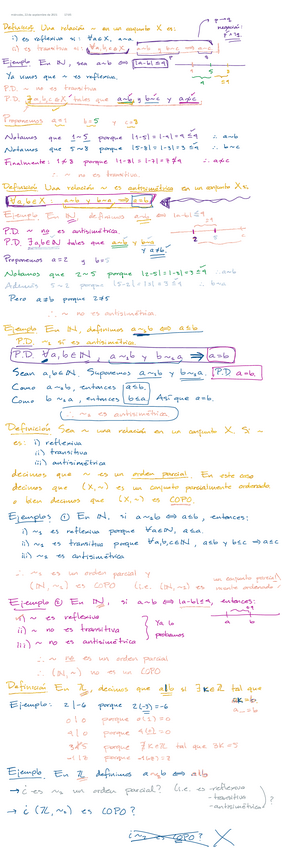 Definición. Una relación ~ en un conjunto X es:
i) es reflexiva si: ∀a∈X, a~a.
ii) es transitiva si: ∀a,b,c∈X, a~b y b~c ⟹ a~c
Ejemplo En ℕ, sea a~b ⟺ |a-b|≤4
Ya vimos que ~ es reflexiva.
P.D. ~ no es transitiva
P.D. ∃a,b,c∈X tales que a~b y b~c y a≁c.
Proponemos a=1 b=5 y c=8
Notamos que 1~5 porque |1-5|=|-4|=4≤4 ∴ a~b
Notamos que 5~8 porque |5-8|=|-3|=3≤4 ∴ b~c
Finalmente: 1≁8 porque |1-8|=|-7|=7≰4 ∴ a≁c
∴ ~ no es transitiva.
Definición Una relación ~ es antisimétrica en un conjunto X si:
∀a,b∈X, a~b y b~a ⟹ a=b
Ejemplo En ℕ, definimos a~b ⟺ |a-b|≤4
P.D. ~ no es antisimétrica.
P.D. ∃a,b∈ℕ tales que a~b y b~a y a≠b.
Proponemos a=2 y b=5
Notamos que 2~5 porque |2-5|=|-3|=3≤4 ∴ a~b
Además 5~2 porque |5-2|=|3|=3≤4 ∴ b~a
Pero a≠b porque 2≠5
∴ ~ no es antisimétrica.
Ejemplo En ℕ, definimos a~₂b ⟺ a≤b
P.D. ~₂ sí es antisimétrica.
P.D. ∀a,b∈ℕ, a~₂b y b~₂a ⟹ a=b
Sean a,b∈ℕ. Supongamos a~₂b y b~₂a. P.D. a=b.
Como a~₂b, entonces a≤b.
Como b~₂a, entonces b≤a. Así que a=b.
∴ ~₂ es antisimétrica
Definición Sea ~ una relación en un conjunto X. Si ~
es: i) reflexiva
ii) transitiva
iii) antisimétrica
decimos que ~ es un orden parcial. En este caso
decimos que (X,~) es un conjunto parcialmente ordenado
o bien decimos que (X,~) es COPO.
Ejemplos ① En ℕ, si a~₂b ⟺ a≤b, entonces:
i) ~₂ es reflexiva porque ∀a∈ℕ, a≤a.
ii) ~₂ es transitiva porque ∀a,b,c∈ℕ, a≤b y b≤c ⟹ a≤c
iii) ~₂ es antisimétrica
∴ ~₂ es un orden parcial y
(ℕ,~₂) es COPO (i.e. (ℕ,~₂) es un conjunto parcialmente ordenado)
Ejemplo ② En ℕ, si a~b ⟺ |a-b|≤4, entonces:
i) ~ es reflexiva
ii) ~ no es transitiva
iii) ~ no es antisimétrica
Ya lo probamos
∴ ~ no es un orden parcial
∴ (ℕ,~) no es COPO
Definición En ℤ, decimos que a|b si ∃k∈ℤ tal que ak=b.
Ejemplo: 2|-6 porque 2(-3)=-6
Ejemplo. En ℤ definimos a~₃b ⟺ a|b
→ ¿es ~₃ un orden parcial? (i.e. es -reflexiva
-transitiva
-antisimétrica)?
→ ¿(ℤ,~₃) es COPO?